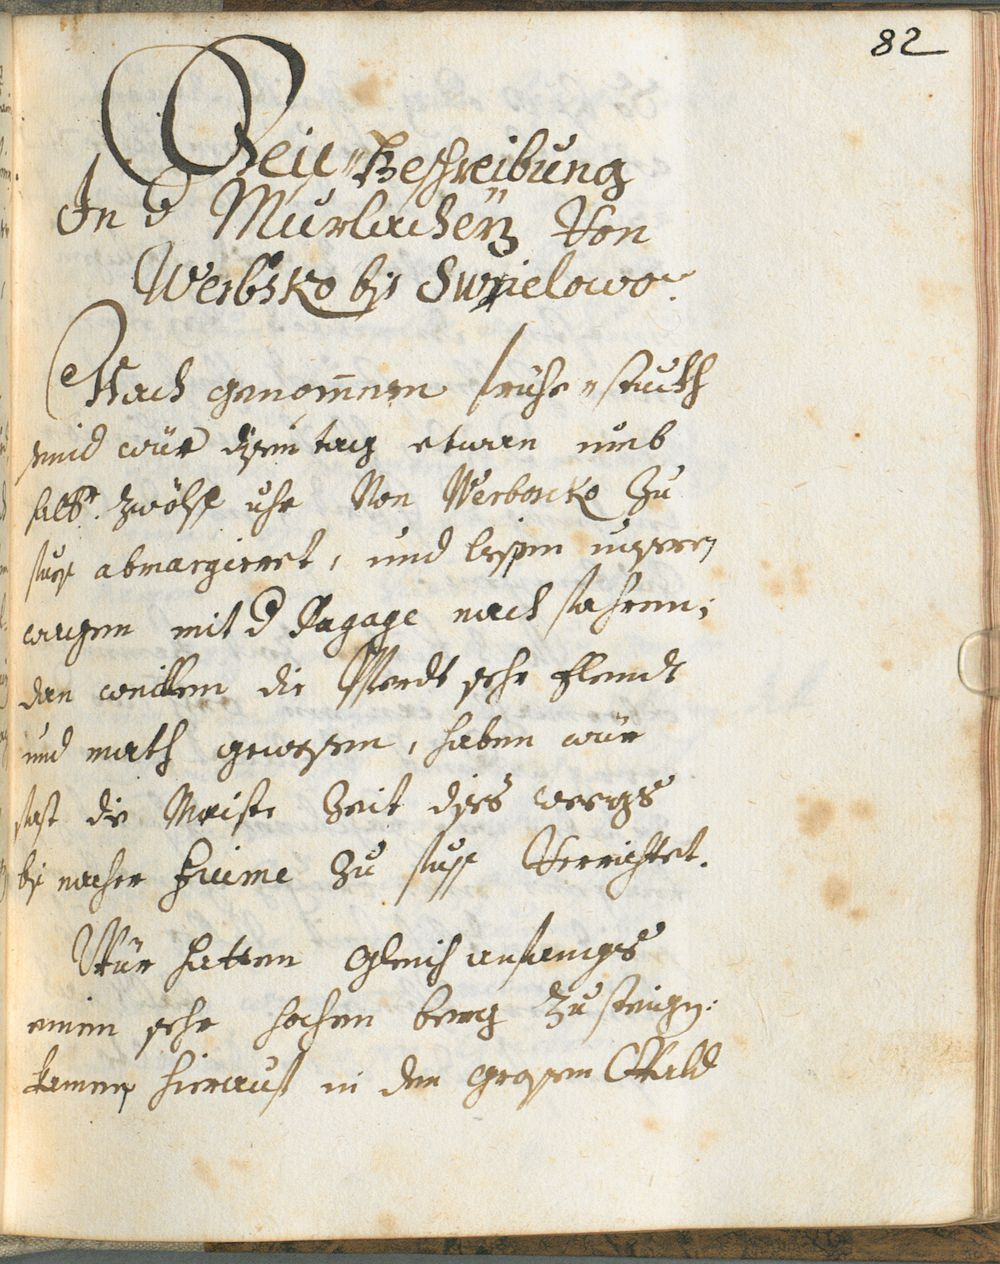 82
Reiß=Beschreibung
In d Murlacheÿ Von
Werbosko biß Swrielowo.
Nach genom̄enem frühe=stuckh
seind wür disen tag etwan umb
halb zwölff uhr Von Werboscko Zu
fueß abmargieret, und liessen unseren
wagen mit d Pagage nach fahren;
dan weillen die Pferdt sehr Elendt
und math gewesen, haben wür
fast die Maiste Zeit dises weegs
biß nacher Fiume Zu fuss Verrichtet.
Wür hatten Gleich anfangs
einen sehr hochen berg Zu steigen:
kamen hierauf in den grossen Wald